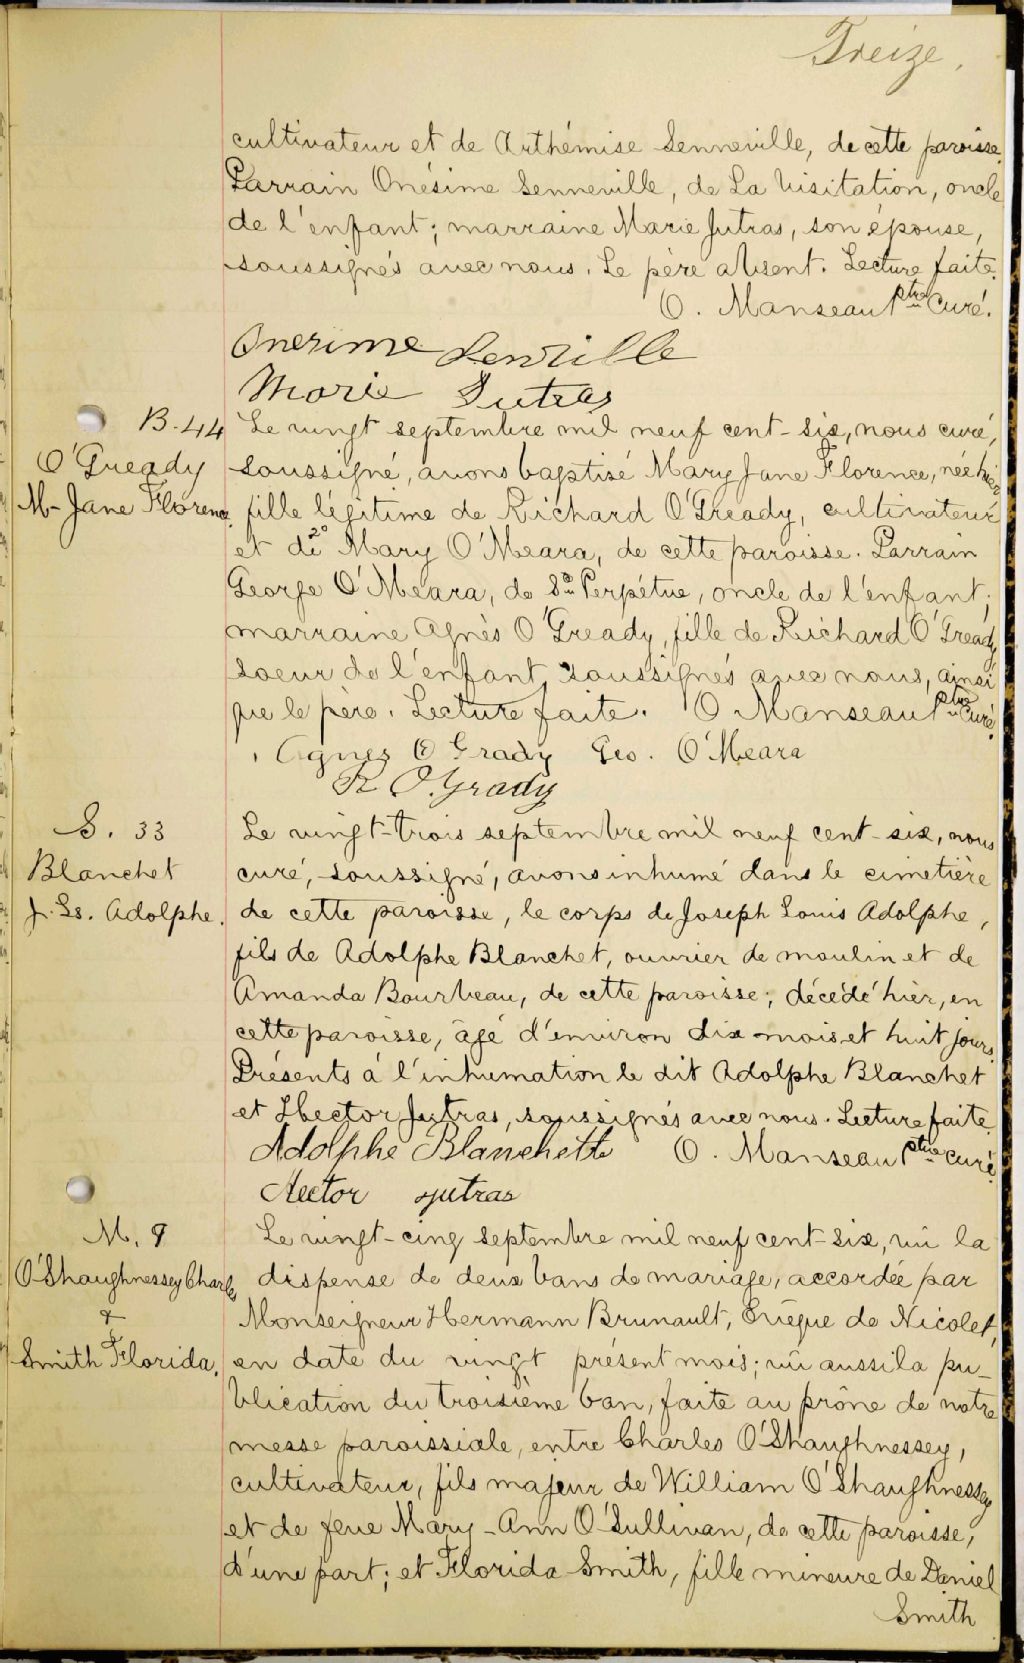 Treize.
cultivateur et de Arthémise Senneville, de cette paroisse.
Parrain Onésime Senneville, de La Visitation, oncle
de l'enfant; marraine Marie Jutras, son épouse,
soussignés avec nous. Le père absent. Lecture faite.
O. Manseau Ptre Curé.
Onerime Senville
Marie Jutras
B. 44
O'Gready
M- Jane Florence.
Le vingt septembre mil neuf cent-six, nous curé,
soussigné, avons baptisé Mary Jane Florence, née hier
fille légitime de Richard O'Gready, cultivateur
et de 2° Mary O'Meara, de cette paroisse. Parrain
George O'Meara, de Ste Perpétue, oncle de l'enfant;
marraine Agnès O'Gready, fille de Richard O'Gready
soeur de l'enfant soussignés avec nous, ainsi
que le père. Lecture faite. O Manseau Ptre Curé.
Agnes O Grady Geo. O'Meara
R O.Grady
S. 33
Blanchet
J. Ls. Adolphe.
Le vingt-trois septembre mil neuf cent-six, nous
curé, soussigné, avons inhumé dans le cimetière
de cette paroisse, le corps de Joseph Louis Adolphe,
fils de Adolphe Blanchet, ouvrier de moulin et de
Amanda Bourbeau, de cette paroisse; décédé hier, en
cette paroisse, âgé d'environ dix mois et huit jours.
Présents à l'inhumation le dit Adolphe Blanchet
et Hector Jutras, soussignés avec nous. Lecture faite.
Adolphe Blanchette O. Manseau Ptre curé.
Hector Jutras
M. 9
O'Shaughnessey Charles
&
Smith Florida.
Le vingt-cinq septembre mil neuf cent-six, vu la
dispense de deux bans de mariage, accordée par
Monseigneur Hermann Brunault, Evêque de Nicolet,
en date du vingt présent mois; vu aussi la pu-
blication du troisième ban, faite au prône de notre
messe paroissiale, entre Charles O'Shaughnessey,
cultivateur, fils majeur de William O'Shaughnessey
et de feue Mary-Ann O'Sullivan, de cette paroisse,
d'une part; et Florida Smith, fille mineure de Daniel
Smith